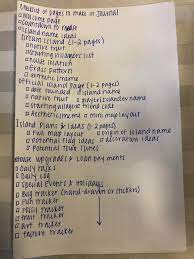 Checklist of pages to make in Journal
□ Welcome page
□ Countdown to
□ Island name ideas
Dream Island (1-2 pages)
□ native fruit
□ starting villagers list
□ house location
□ grass pattern
□ aesthetic/theme
Official Island Page (1-2 pages)
□ dated number
□ native fruit □ player/islander name
□ starting villagers & island name
□ Aesthetic/theme □ mini map layout
Island Plans & Ideas (1-2 pages)
□ Full map layout □ origin of island name
□ Potential flag ideas □ decoration ideas
□ Potential town tunes
House upgrades & Loan Payments
□ Daily tasks
□ Daily Log
□ Special Events & Holidays
□ Bug tracker (hand-drawn or stickers)
□ Fish tracker
□ Fossil tracker
□ Fruit tracker
□ Art tracker
□ tracker